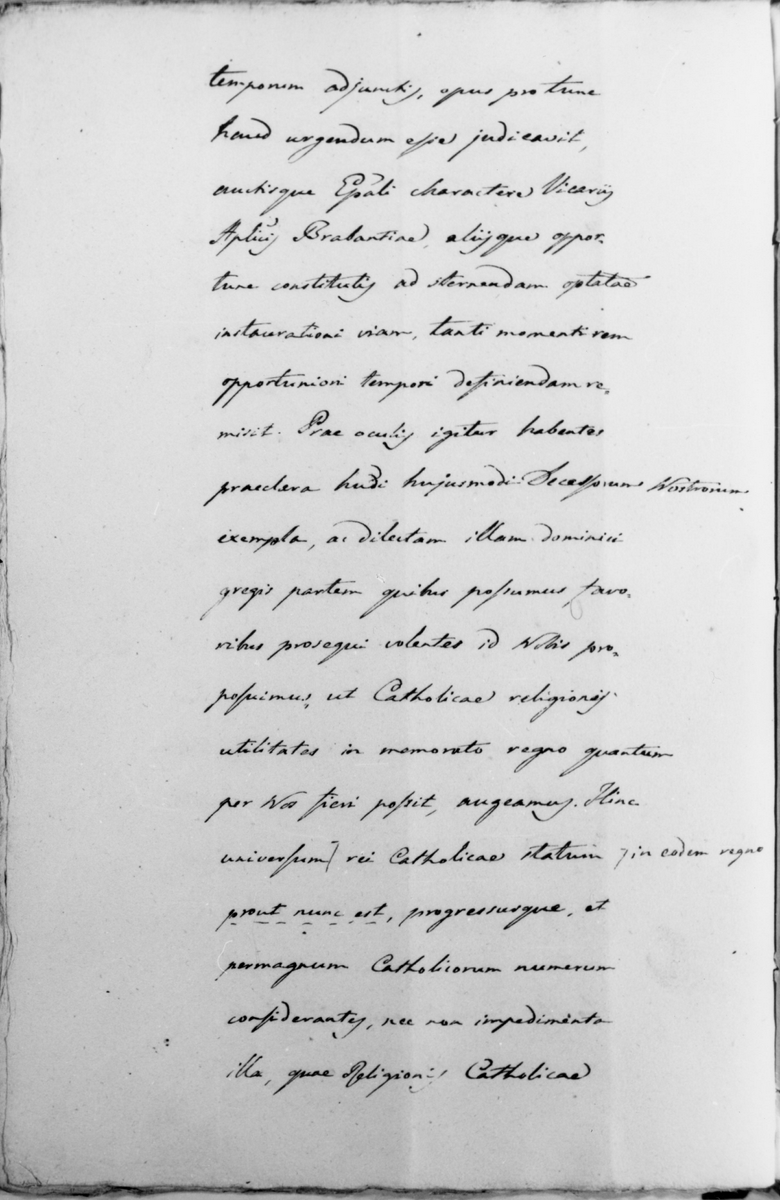 temporum adjunctis, opus pro tunc
haud urgendum esse judicavit,
auctisque Epali charactere Vicariis
Aplicis Brabantiae, aliisque oppor-
tune constitutis ad sternendam optatae
instaurationi viam, tanti momenti rem
opportuniori tempori definiendam re-
misit. Prae oculis igitur habentes
praeclara hujusmodi Decessorum Nostrorum
exempla, ac dilectam illam dominici
gregis partem quibus possumus, favo-
ribus prosequi volentes id Nobis pro-
posuimus, ut Catholicae religionis
utilitates in memorato regno quantum
per Nos fieri possit, augeamus. Hinc
universum rei Catholicae statum in eodem regno
prout nunc est, progressusque, et
permagnum Catholicorum numerum
considerantes, nec non impedimenta
illa, quae Religionis Catholicae